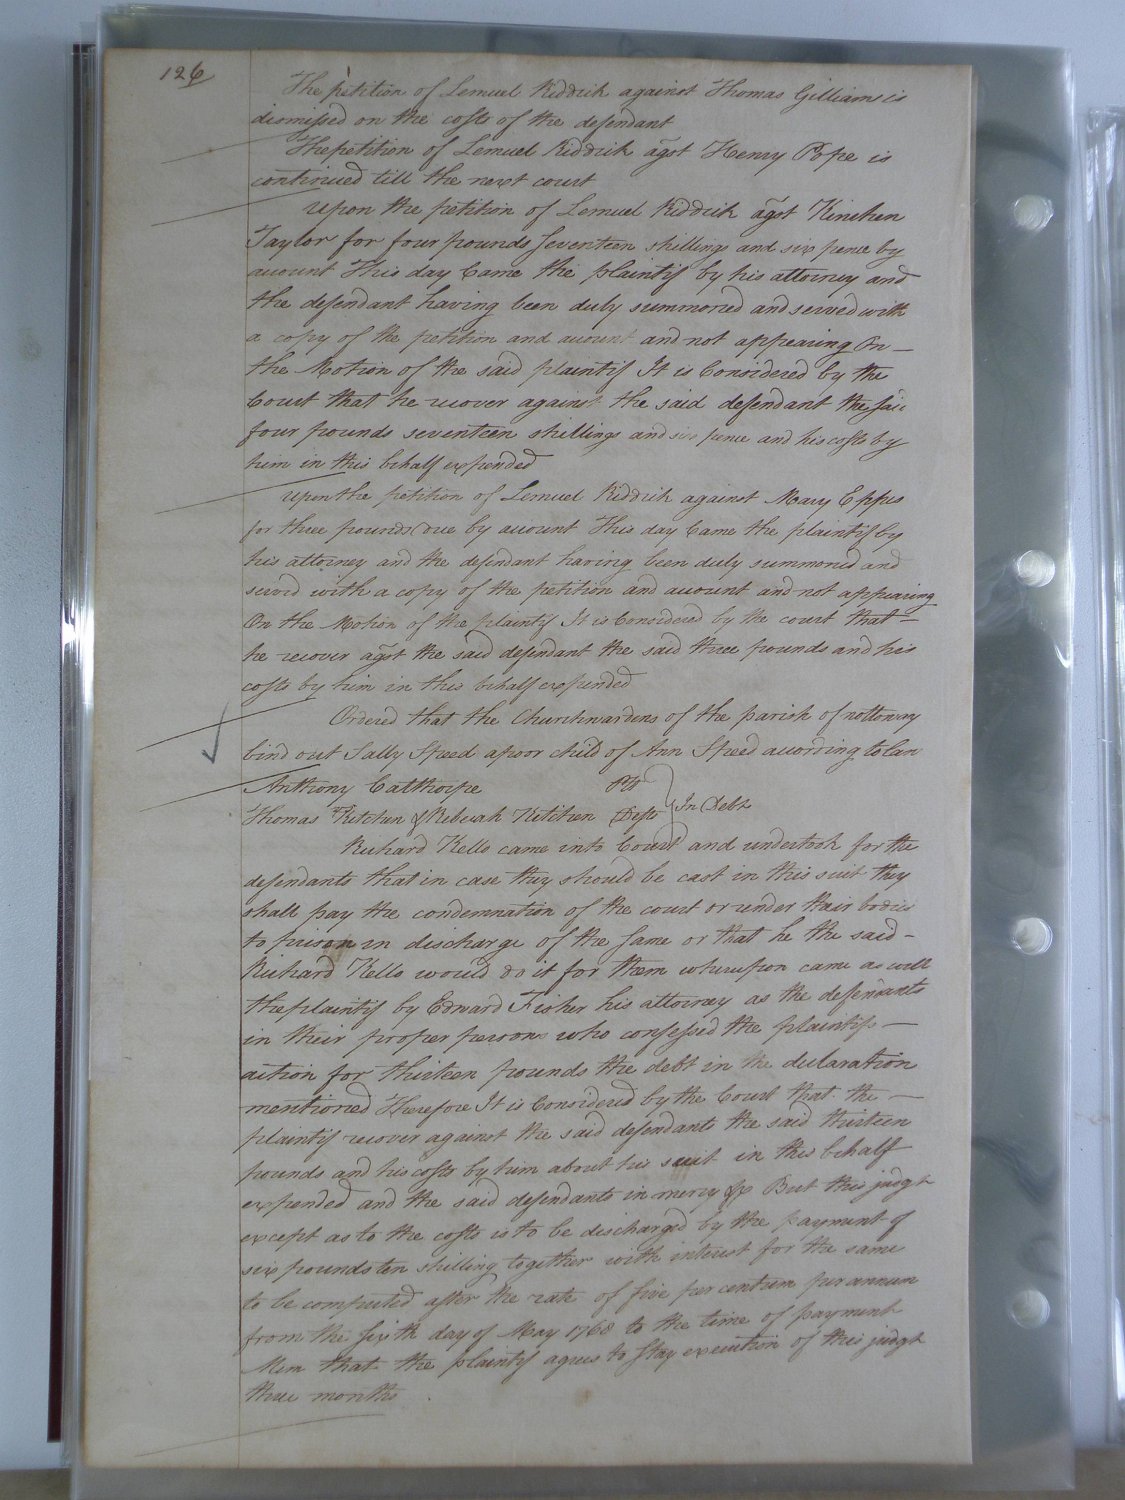 126
The petition of Lemuel Riddick against Thomas Gilliam is
dismissed on the costs of the defendant
The petition of Lemuel Riddick agst Henry Pope is
continued till the next court
upon the petition of Lemuel Riddick agst Kinchen
Taylor for four pounds seventeen shillings and six pence by
account This day Came the plaintif by his attorney and
the defendant having been duly summoned and served with
a copy of the petition and account and not appearing On
the Motion of the said plaintif It is Considered by the
Court that he recover against the said defendant the said
four pounds seventeen shillings and six pence and his costs by
him in this behalf expended
upon the petition of Lemuel Riddick against Mary Epps
for three pounds due by account This day Came the plaintif by
his attorney and the defendant having been duly summoned and
served with a copy of the petition and account and not appearing
On the Motion of the plaintif It is Considered by the court that
he recover agst the said defendant the said three pounds and his
costs by him in this behalf expended
Ordered that the Churchwardens of the parish of nottoway
bind out Sally Speed a poor child of Ann Speed according to law
Anthony Calthorpe Plt
Thomas Kitchen & Rebecah Kitchen Defts In Debt
Richard Kello came into Court and undertook for the
defendants that in case they should be cast in this suit they
shall pay the condemnation of the court or under their bodies
to prison in discharge of the same or that he the said
Richard Kello would do it for them whereupon came as well
the plaintif by Edward Fisher his attorney as the defendants
in their proper persons who confessed the plaintifs
action for thirteen pounds the debt in the declaration
mentioned Therefore It is Considered by the Court that the
plaintif recover against the said defendants the said thirteen
pounds and his costs by him about his suit in this behalf
expended and the said defendants in mercy &c But this judgt
except as to the costs is to be discharged by the payment of
six pounds ten shilling together with interest for the same
to be computed after the rate of five per centum per annum
from the sixth day of May 1768 to the time of payment
Mem that the plaintif agrees to stay execution of this judgt
three months